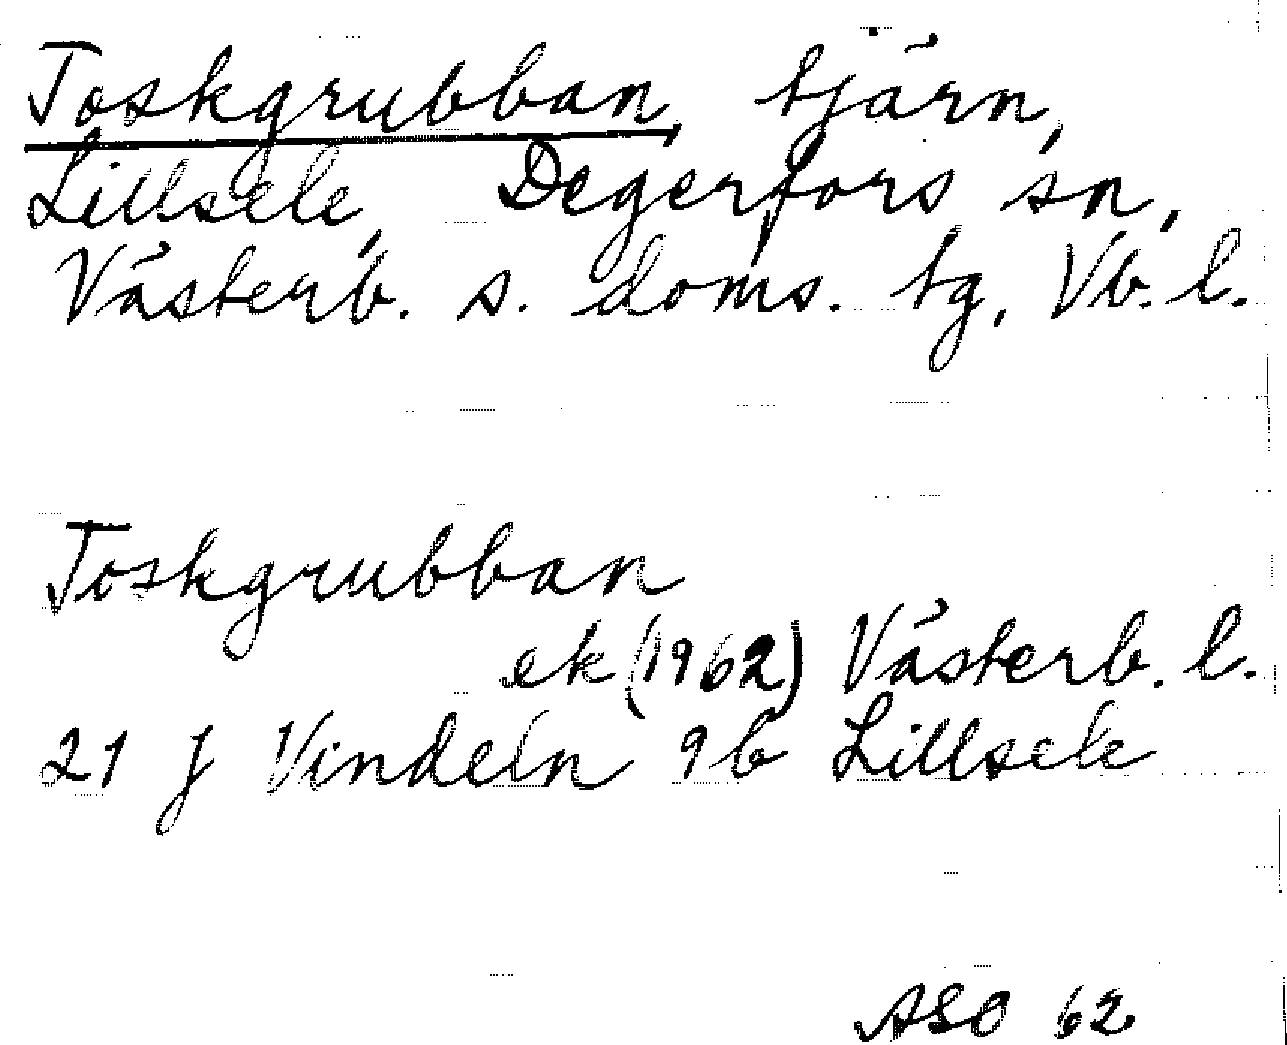 Toskgrubban, tjärn,
Lillsele, Degerfors sn,
Västerb. s. doms. tg, Vb. l.
Toskgrubban
ek (1962) Västerb. l.
21 J Vindeln 9b Lillsele
ASO 62